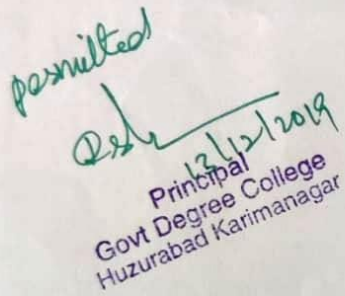 permitted
13/12/2019
Principal
Govt Degree College
Huzurabad Karimanagar